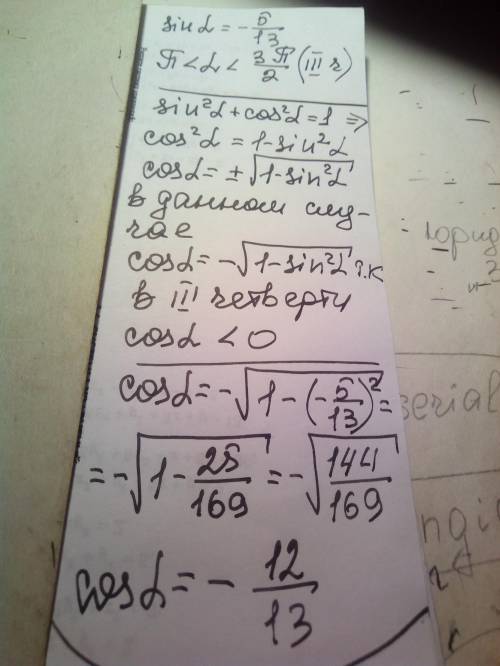 sin α = - 5/13
π < α < 3π/2 (III ч)
sin²α + cos²α = 1 ⇒
cos²α = 1 - sin²α
cos α = ± √(1 - sin²α)
в данном слу-
чае
cos α = - √(1 - sin²α) т.к
в III четверти
cos α < 0
cos α = - √(1 - (- 5/13)²) =
= - √(1 - 25/169) = - √(144/169)
cos α = - 12/13
юрид
serial